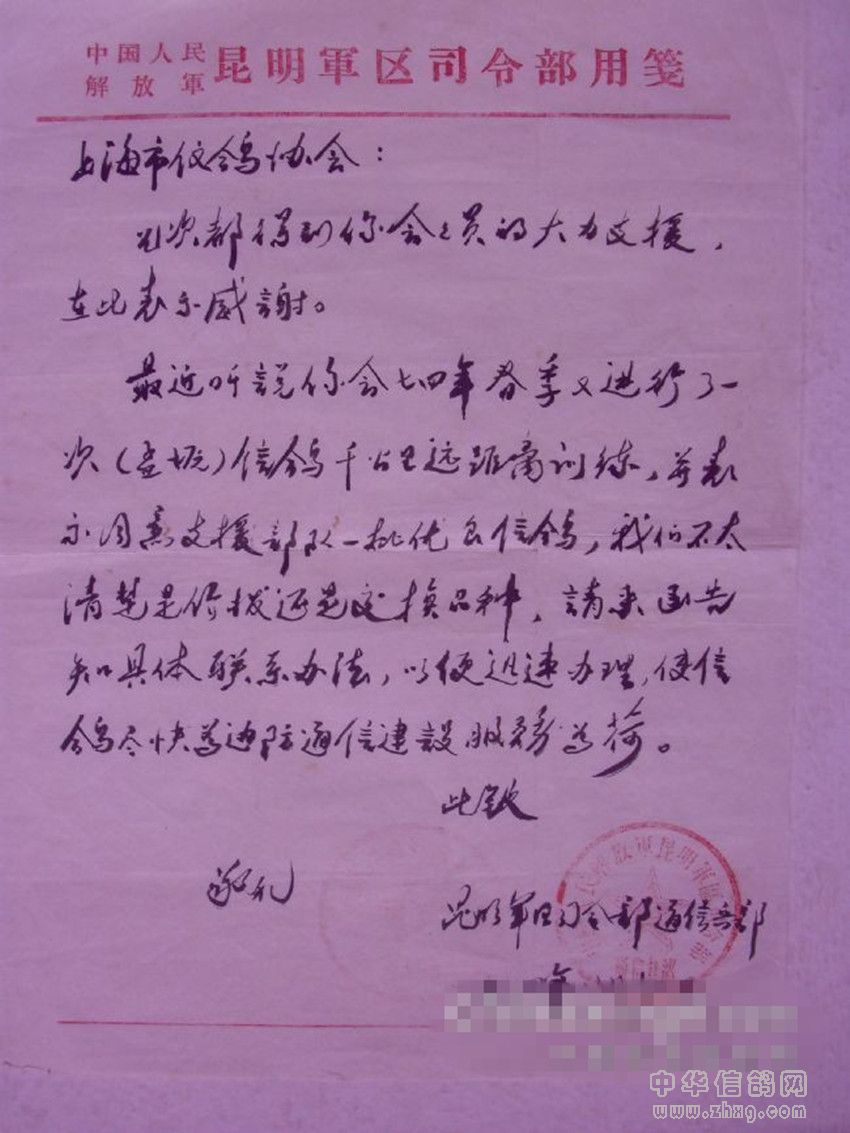 中国人民
解放軍
昆明軍区司令部用箋
上海市信鸽协会：
几次都得到你会会员的大力支援，
在此表示感謝。
最近听説你会七四年春季又进行了一
次（孟塬）信鸽千公里远距离训练，并表
示同意支援部队一批优良信鸽，我们不太
清楚是价拨还是交换品种，請来函告
知具体联系办法，以便迅速办理，使信
鸽尽快为边防通信建設服务为荷。
此致
敬礼
昆明军区司令部通信兵部
中华信鸽网
www.zhxg.com